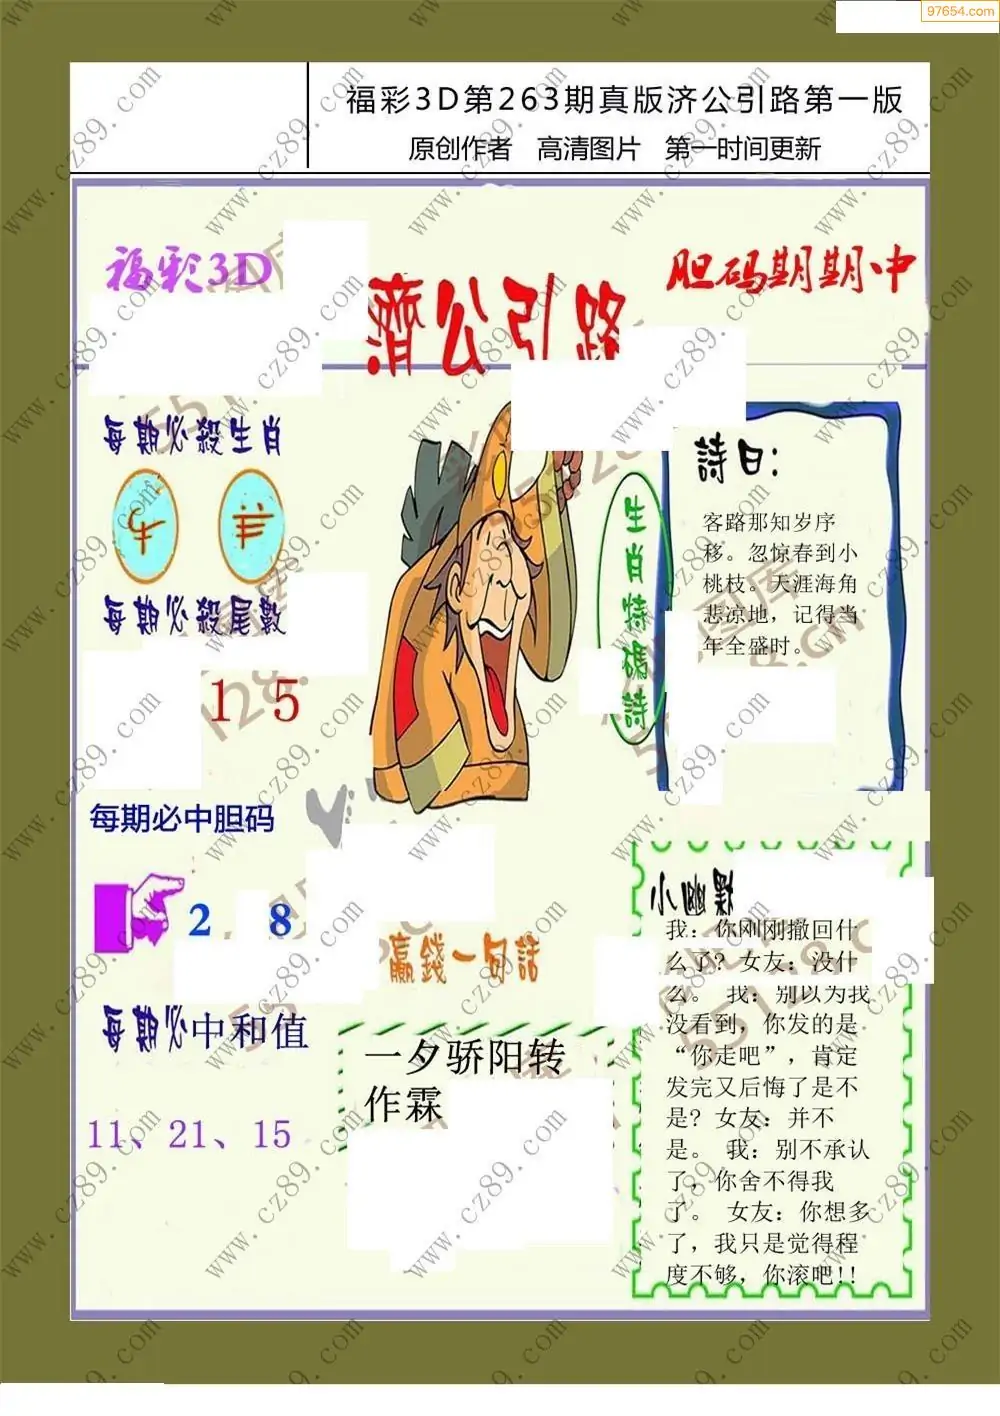 97654.com
福彩3D第263期真版济公引路第一版
原创作者 高清图片 第一时间更新
福彩3D
胆码期期中
濟公引路
每期必殺生肖
牛
每期必殺尾數
1 5
每期必中胆码
2 8
每期必中和值
11、21、15
生肖特碼詩
詩曰:
客路那知岁序
移。忽惊春到小
桃枝。天涯海角
悲凉地，记得当
年全盛时。
赢錢一句話
一夕骄阳转
作霖
小幽默
我：你刚刚撤回什
么了? 女友：没什
么。 我：别以为我
没看到，你发的是
“你走吧”，肯定
发完又后悔了是不
是? 女友：并不
是。 我：别不承认
了，你舍不得我
了。 女友：你想多
了，我只是觉得程
度不够，你滚吧!!
www.cz89.com